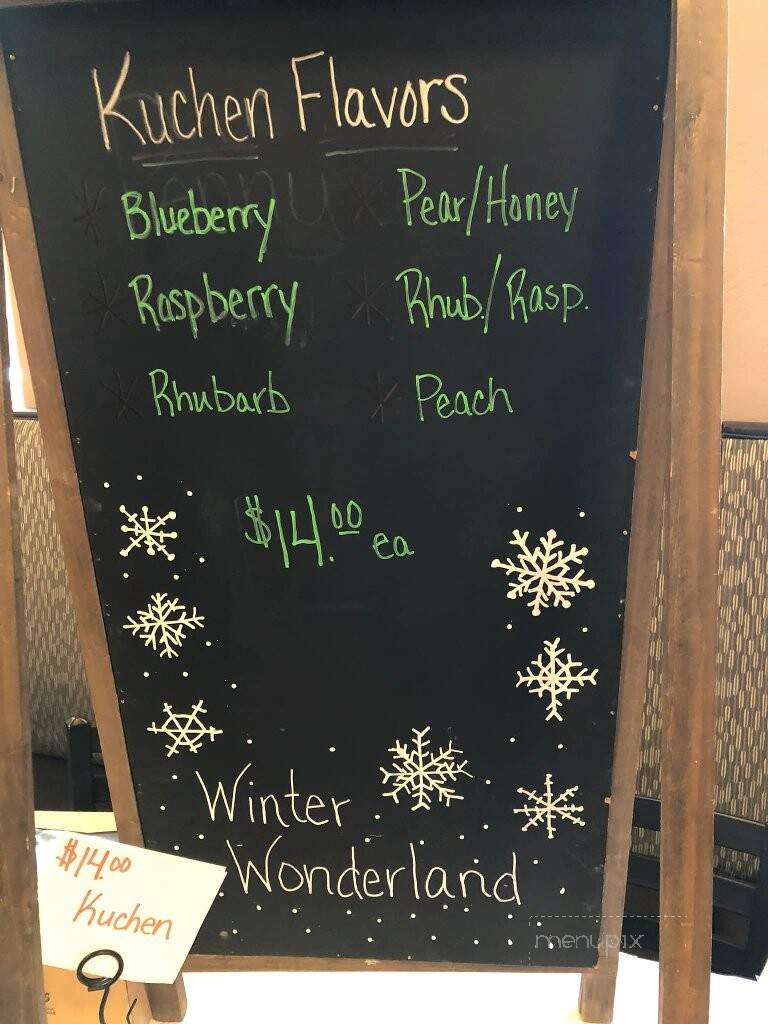 Kuchen Flavors
Blueberry
Pear/Honey
Raspberry
Rhub./Rasp.
Rhubarb
Peach
$14.00 ea
Winter
Wonderland
$14.00
Kuchen
menupix